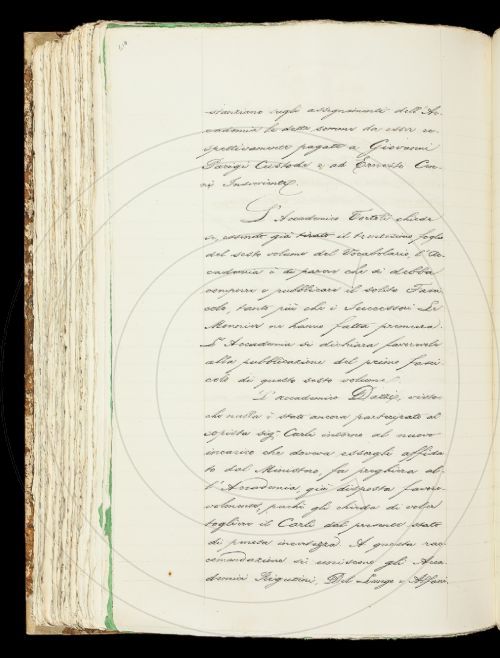 stanziano sugli assegnamenti dell'Ac-
cademia le dette somme da esser re-
spettivamente pagate a Giovanni
Parigi Custode e ad Ernesto Cen-
ni Inserviente.
L'Accademico Tortoli chiede
se, essendo già tirato il trentesimo foglio
del sesto volume del Vocabolario, l'Ac-
cademia è di parere che si debba
compire e pubblicare il solito Fasci-
colo, tanto più che i Successori Le
Monnier ne hanno fatta premura.
L'Accademia si dichiara favorevole
alla pubblicazione del primo fasci-
colo di questo sesto volume.
L'accademico Dazzi, visto
che nulla è stato ancora partecipato al
copista sig. Carli intorno al nuovo
incarico che doveva essergli affida-
to dal Ministero, fa preghiera al-
l'Accademia, già disposta favore-
volmente, perchè gli chieda di voler
togliere il Carli dal presente stato
di penosa incertezza. A questa rac-
comandazione si uniscono gli Acca-
demici Rigutini, Del Lungo e Alfani